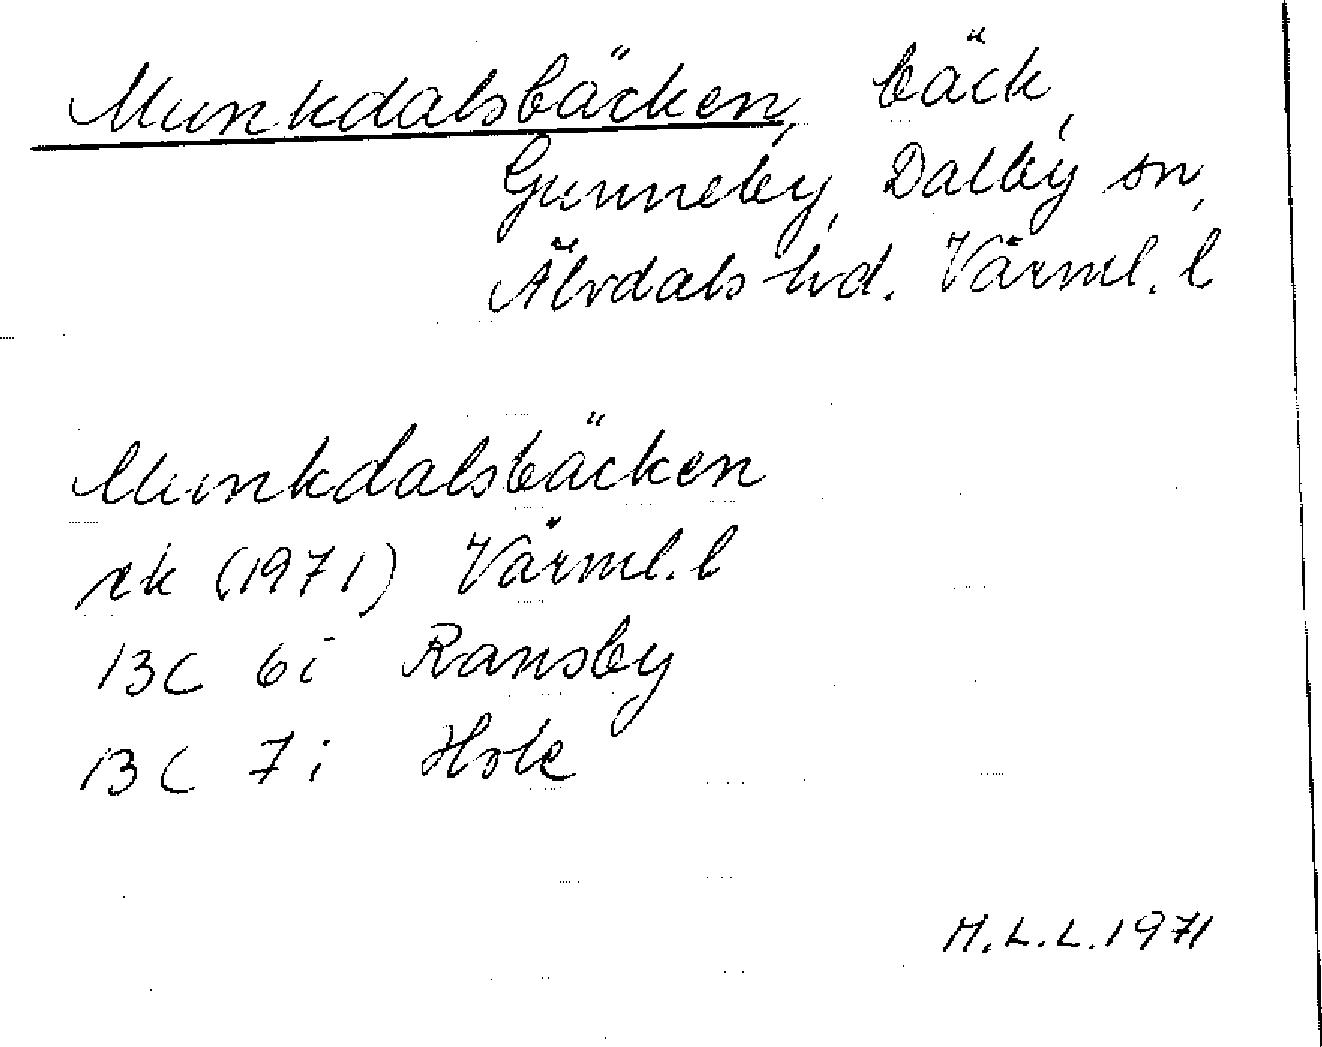 Munkdalsbäcken, bäck,
Gunneby, Dalby sn,
Älvdals hd. Värml. l
Munkdalsbäcken
rk (1971) Värml. l
13C 6i Ransby
13C 7i Hole
M.L.L. 1971